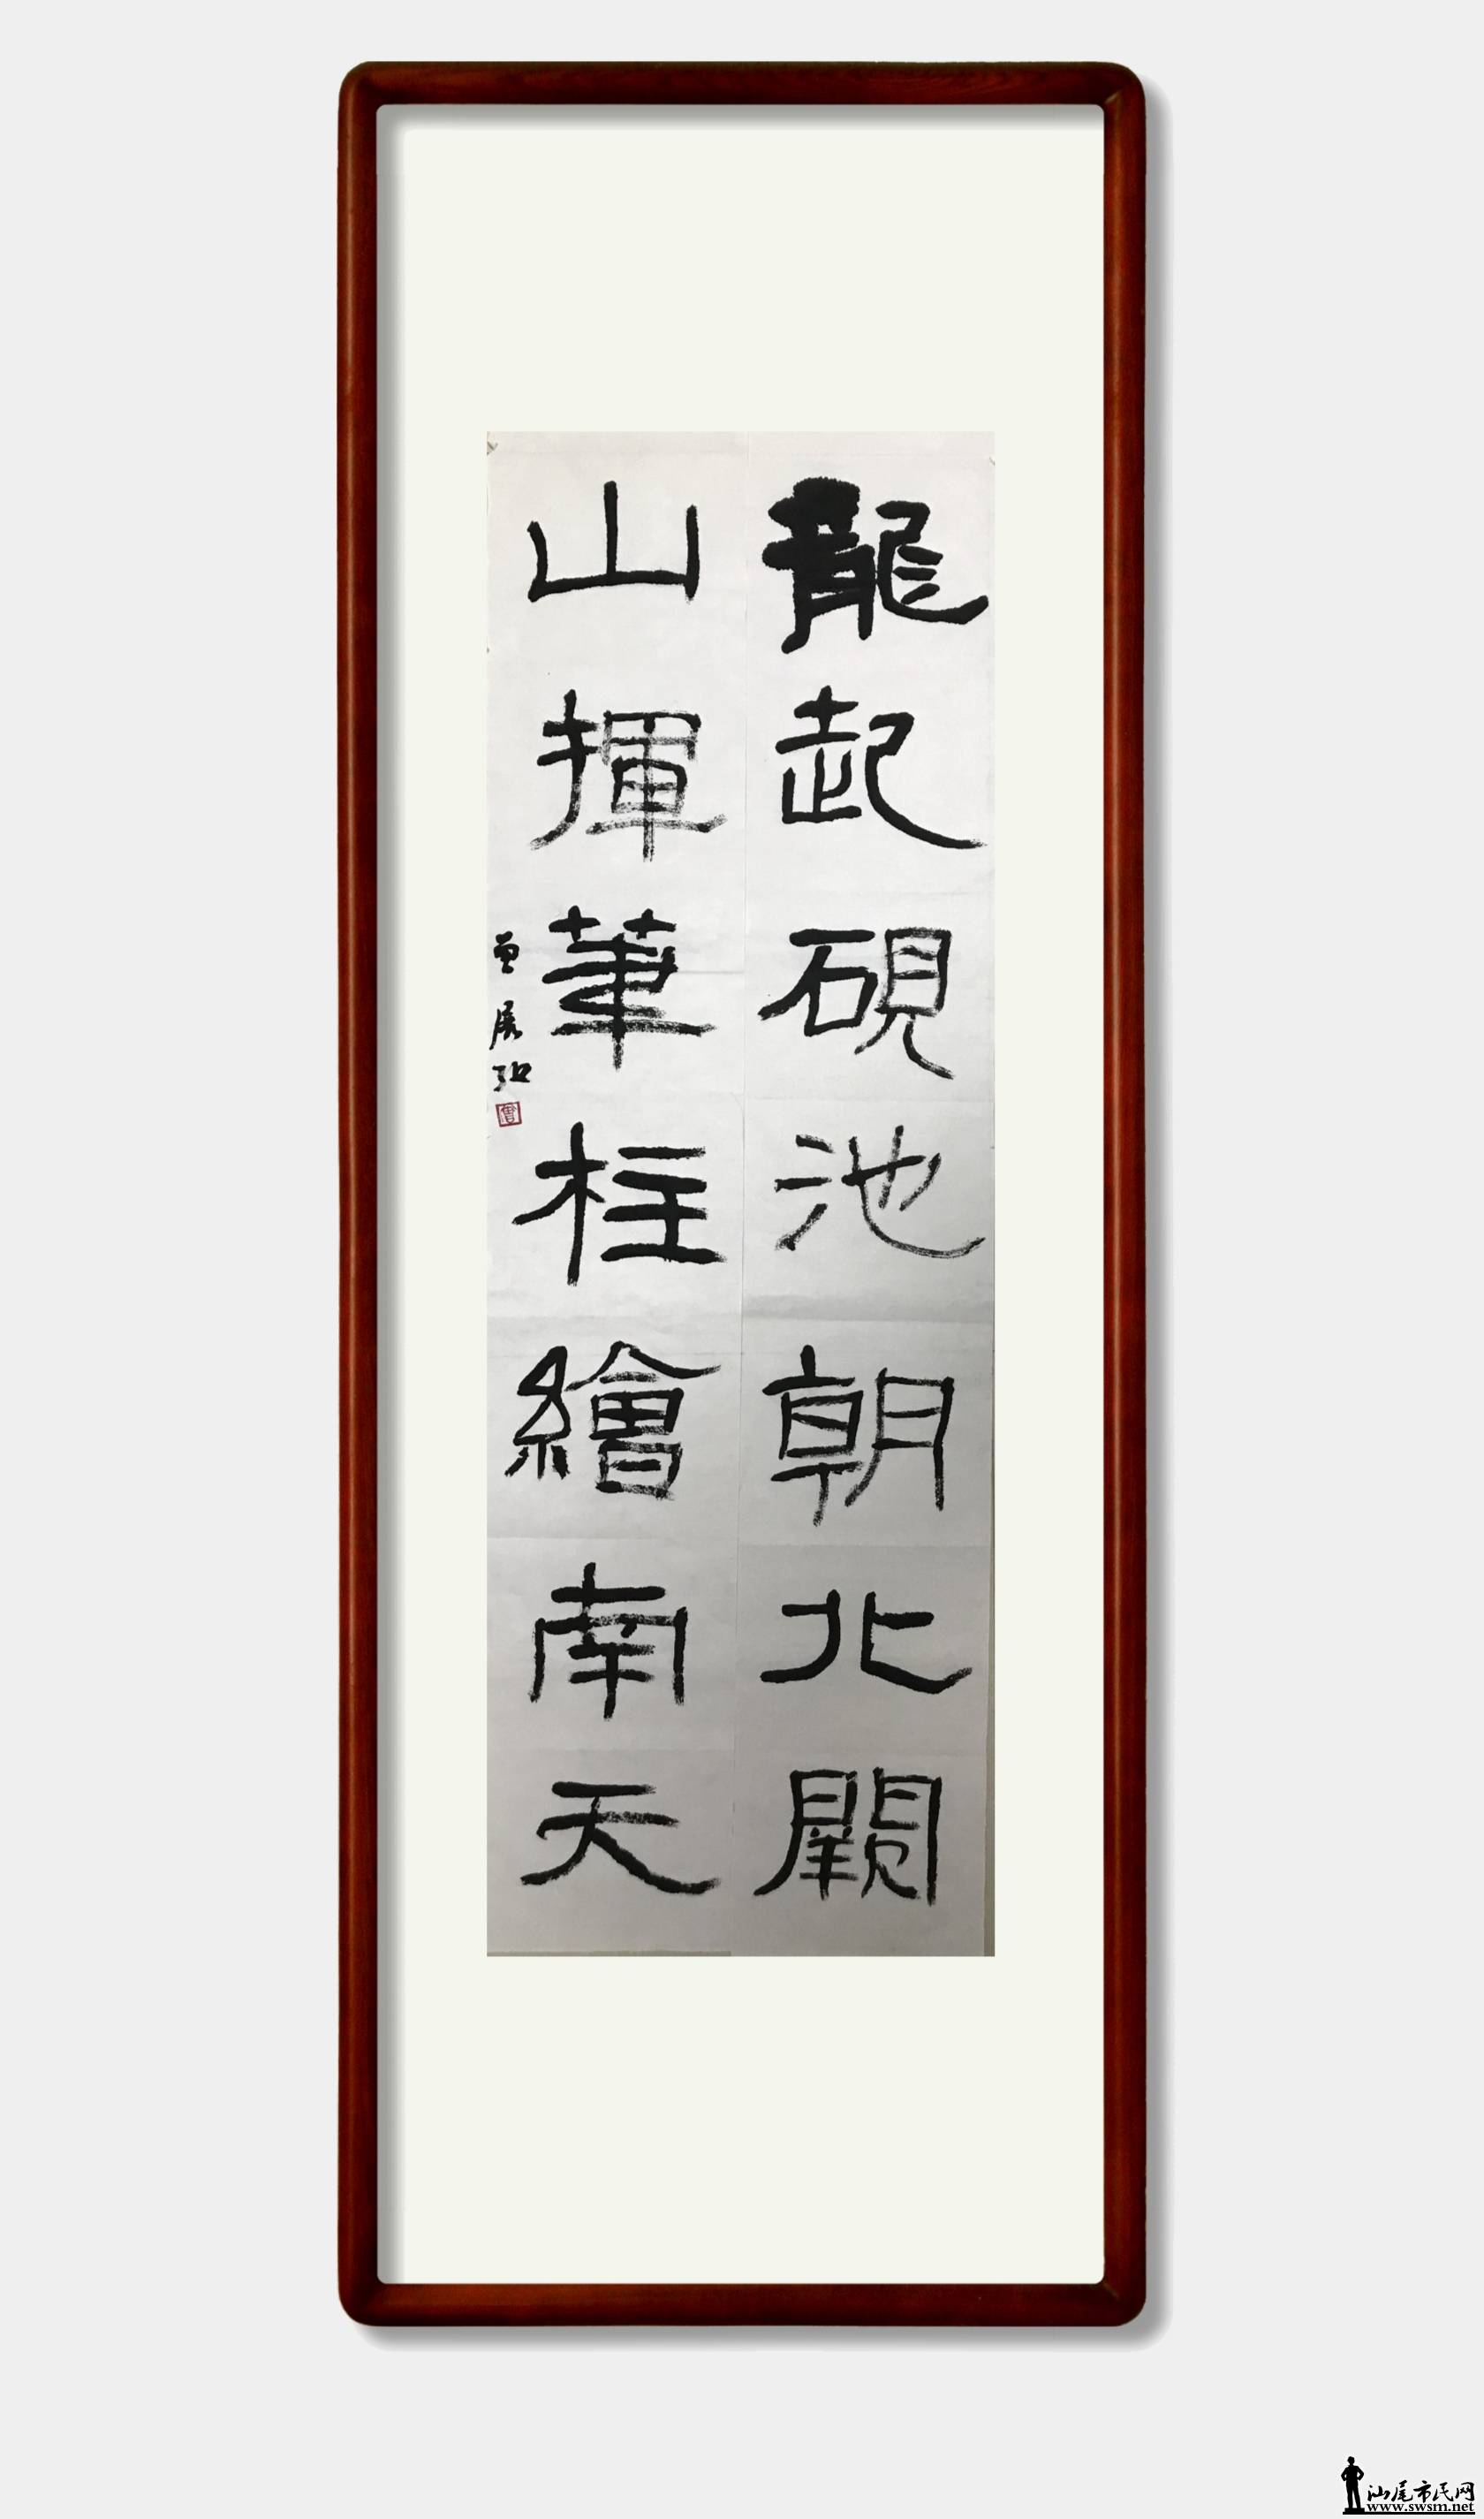 龍起硯池朝北闕
山揮筆柱繪南天
曾展弘
曾
汕尾市民网
www.swsm.net